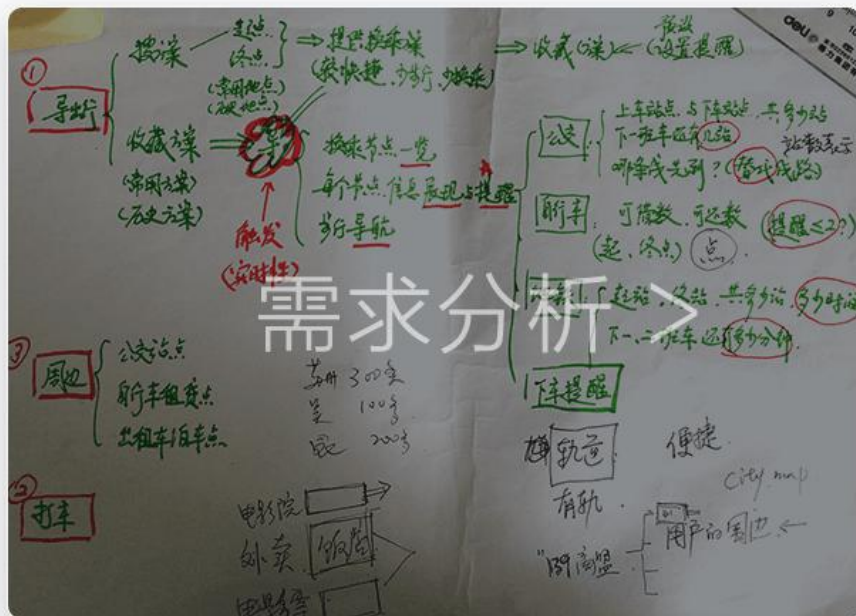 ①
导出行
搜索
起点
终点
(常用地点)
⇒ 提供换乘方案
(较快捷、少步行、少换乘)
⇒ 收藏(方案) ← (设置提醒)
收藏方案
(常用方案)
(历史方案)
触发
(实时性)
换乘节点一览
每个节点信息展现与提醒
步行导航
公交
上车站点与下车站点，共多少站
下一班车还有几站
哪条线先到？(替代线路)
自行车
可借数、可还数 (提醒≤2?)
(起、终点) 点
起站、终站、共多少站、多少时间
下一、二班车还有多少分钟
下车提醒
需求分析 >
③
周边
公交站点
自行车租赁点
出租车泊车点
苏州 300多
吴 100多
200多
②
打车
电影院
外卖
饭店
轨道
有轨
便捷
city map
商盟
用户的周边
deli